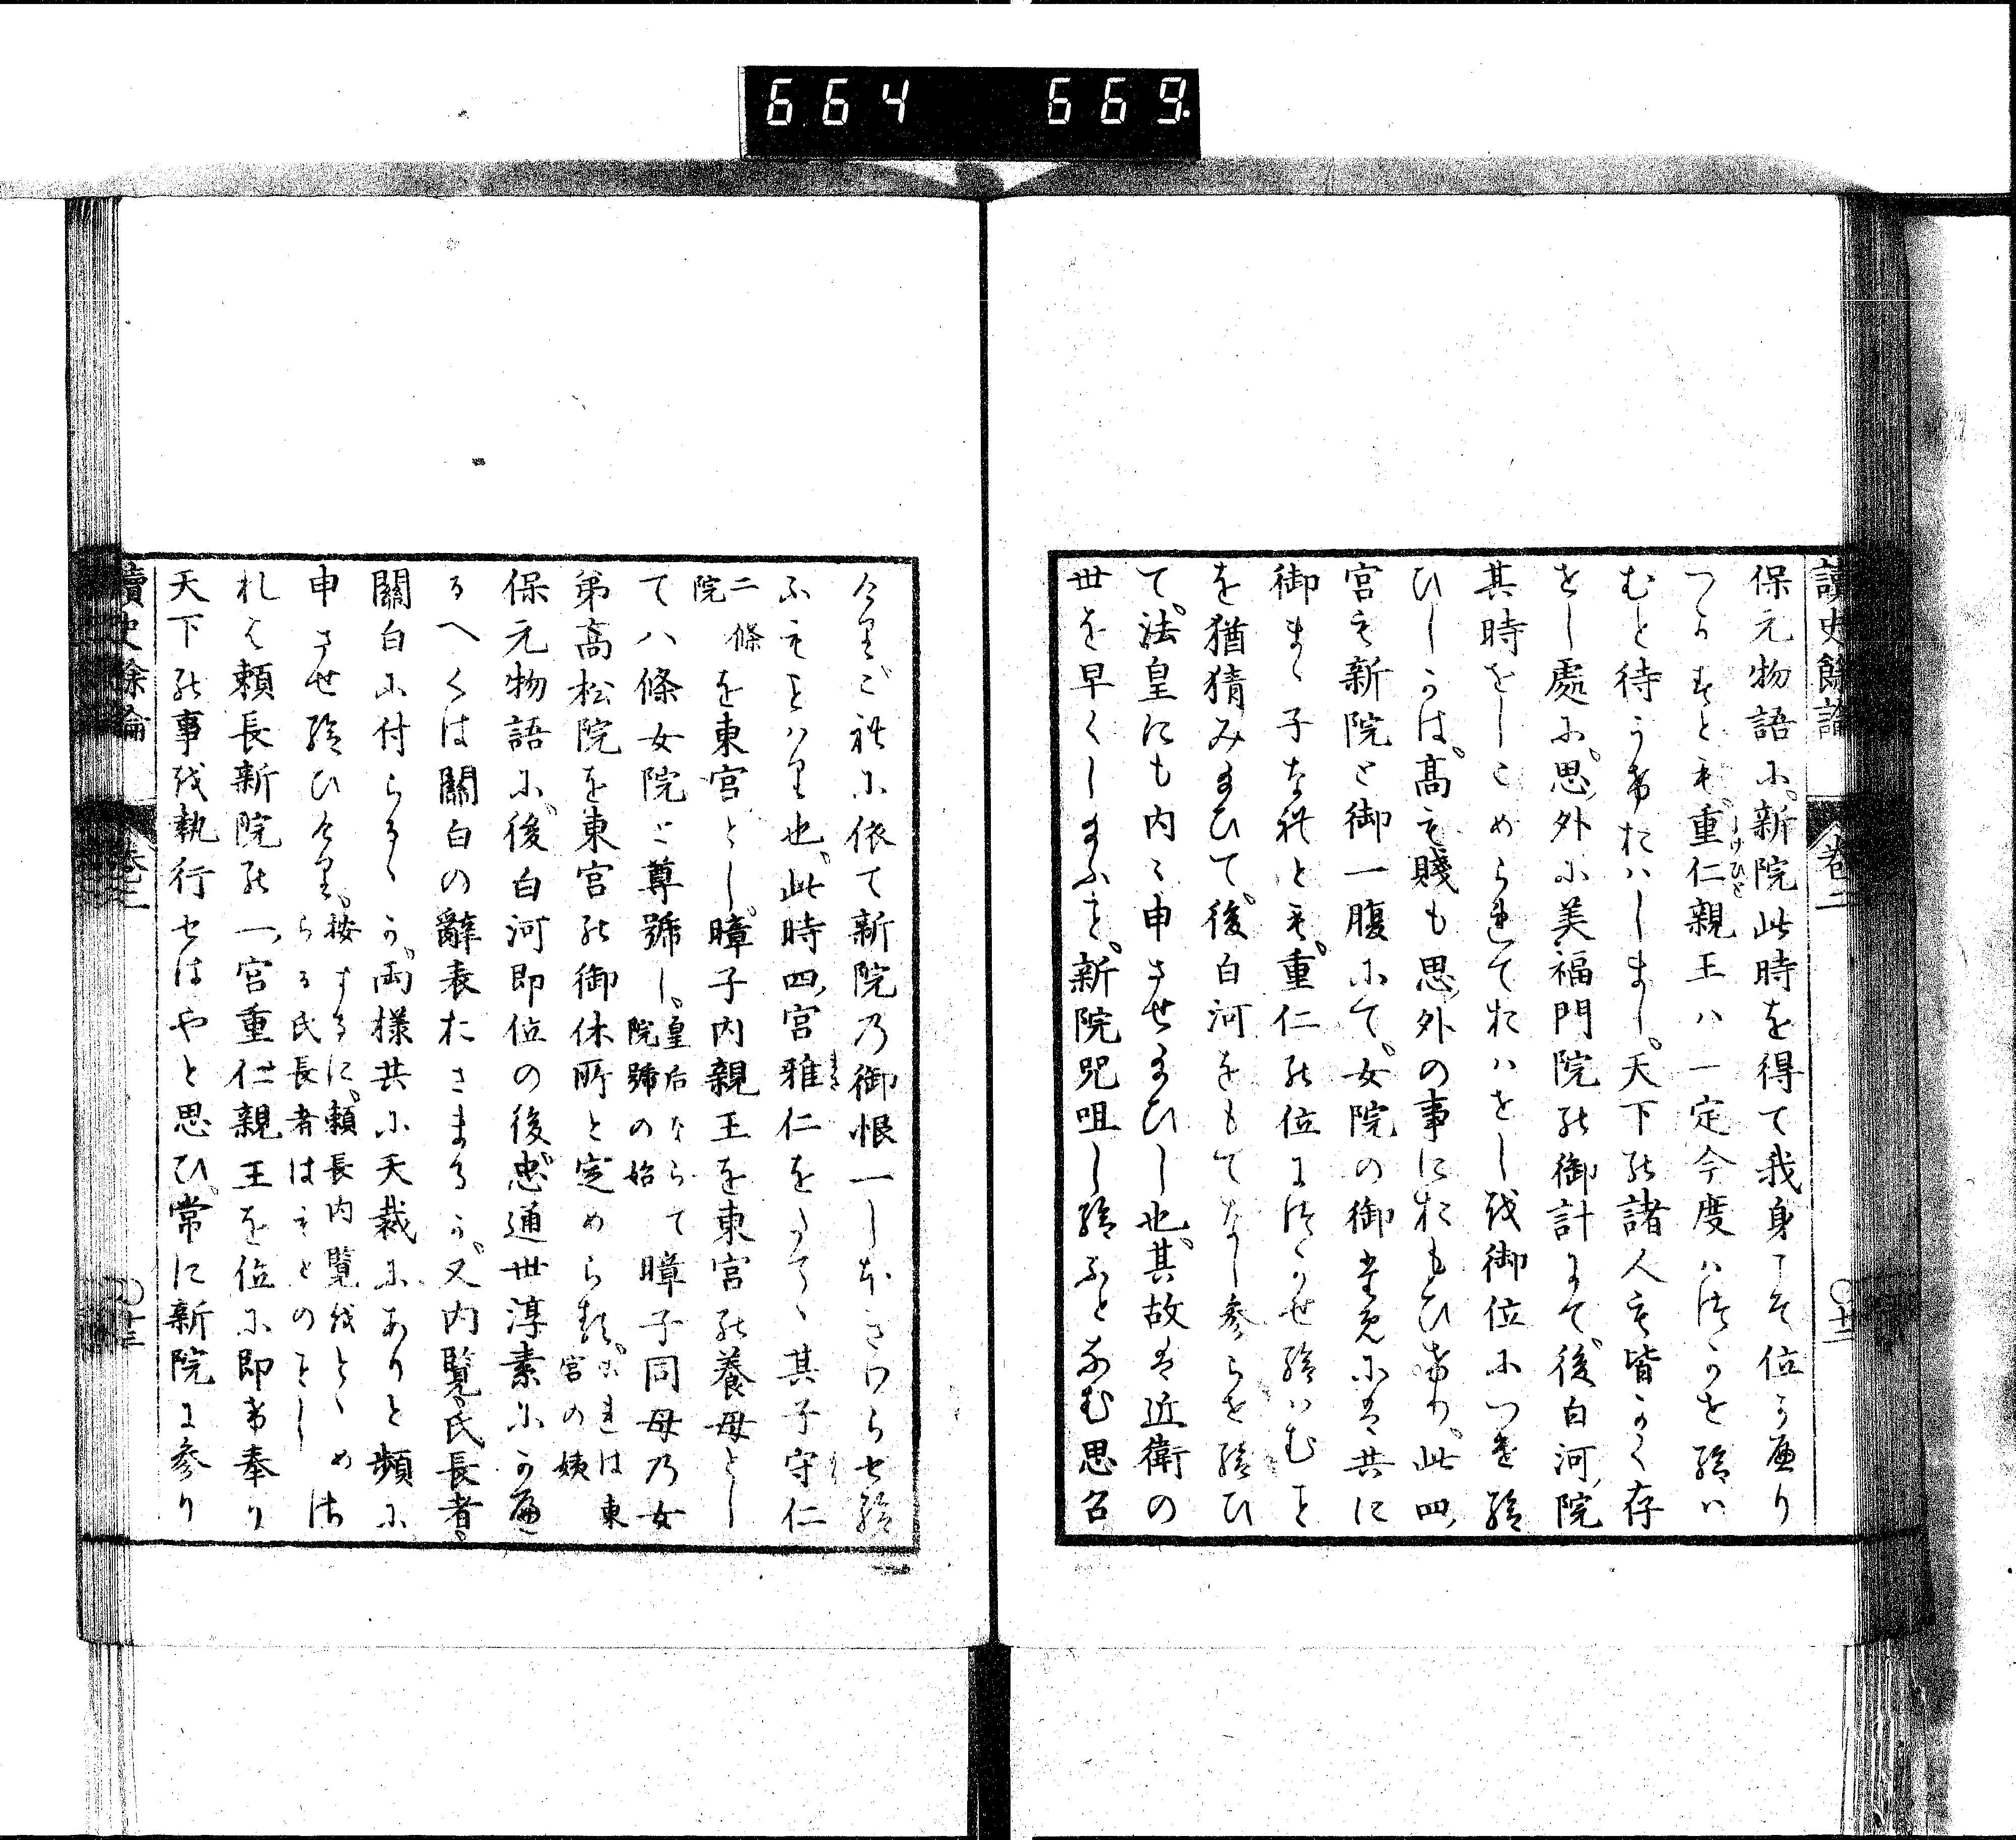 664 669
讀史餘論 卷二 ○十二
保元物語に、新院此時を得て我身こそ位にかへり
つかすとも、重仁(しげひと)親王ハ一定今度ハ位につかせ給ハ
むと待うけおはしまし、天下の諸人も皆かく存
せし處に、思外に美福門院の御計にて、後白河院
其時をしこめられておハせしを御位につき給
ひしかは、高も賤も思外の事におもひけり、此四
宮も新院と御一腹にて、女院の御ためには共に
御まゝ子なれとも、重仁の位につかせ給ハむを
を猶猜みまひて、後白河をもてなし参らせ給ひ
て、法皇にも内々申させまひし也、其故は近衛の
世を早くしまふを、新院咒咀し給ふとなむ思召
今里ごれに依て新院乃御恨一しほまさらせ給
ふもことハり也、此時四宮雅仁をたてゝ其子守仁
二條院を東宮とし、暲子内親王を東宮の養母とし
て八條女院と尊號し、皇后ならて院號の始 暲子同母乃女
弟高松院を東宮の御休所と定めらる、これは東宮の姨
保元物語に、後白河即位の後忠通世淳素にかへ
るへくは關白の辭表おさまるか、又内覧氏長者、
關白に付らるゝか、両樣共に天裁にありと頻に
申させ給ひけり、按するに、頼長内覧をとゝめられ氏長者はもとのことし
れは頼長新院の一宮重仁親王を位に即け奉り
天下の事を執行せはやと思ひ、常に新院に参り
讀史餘論 卷二 ○十三